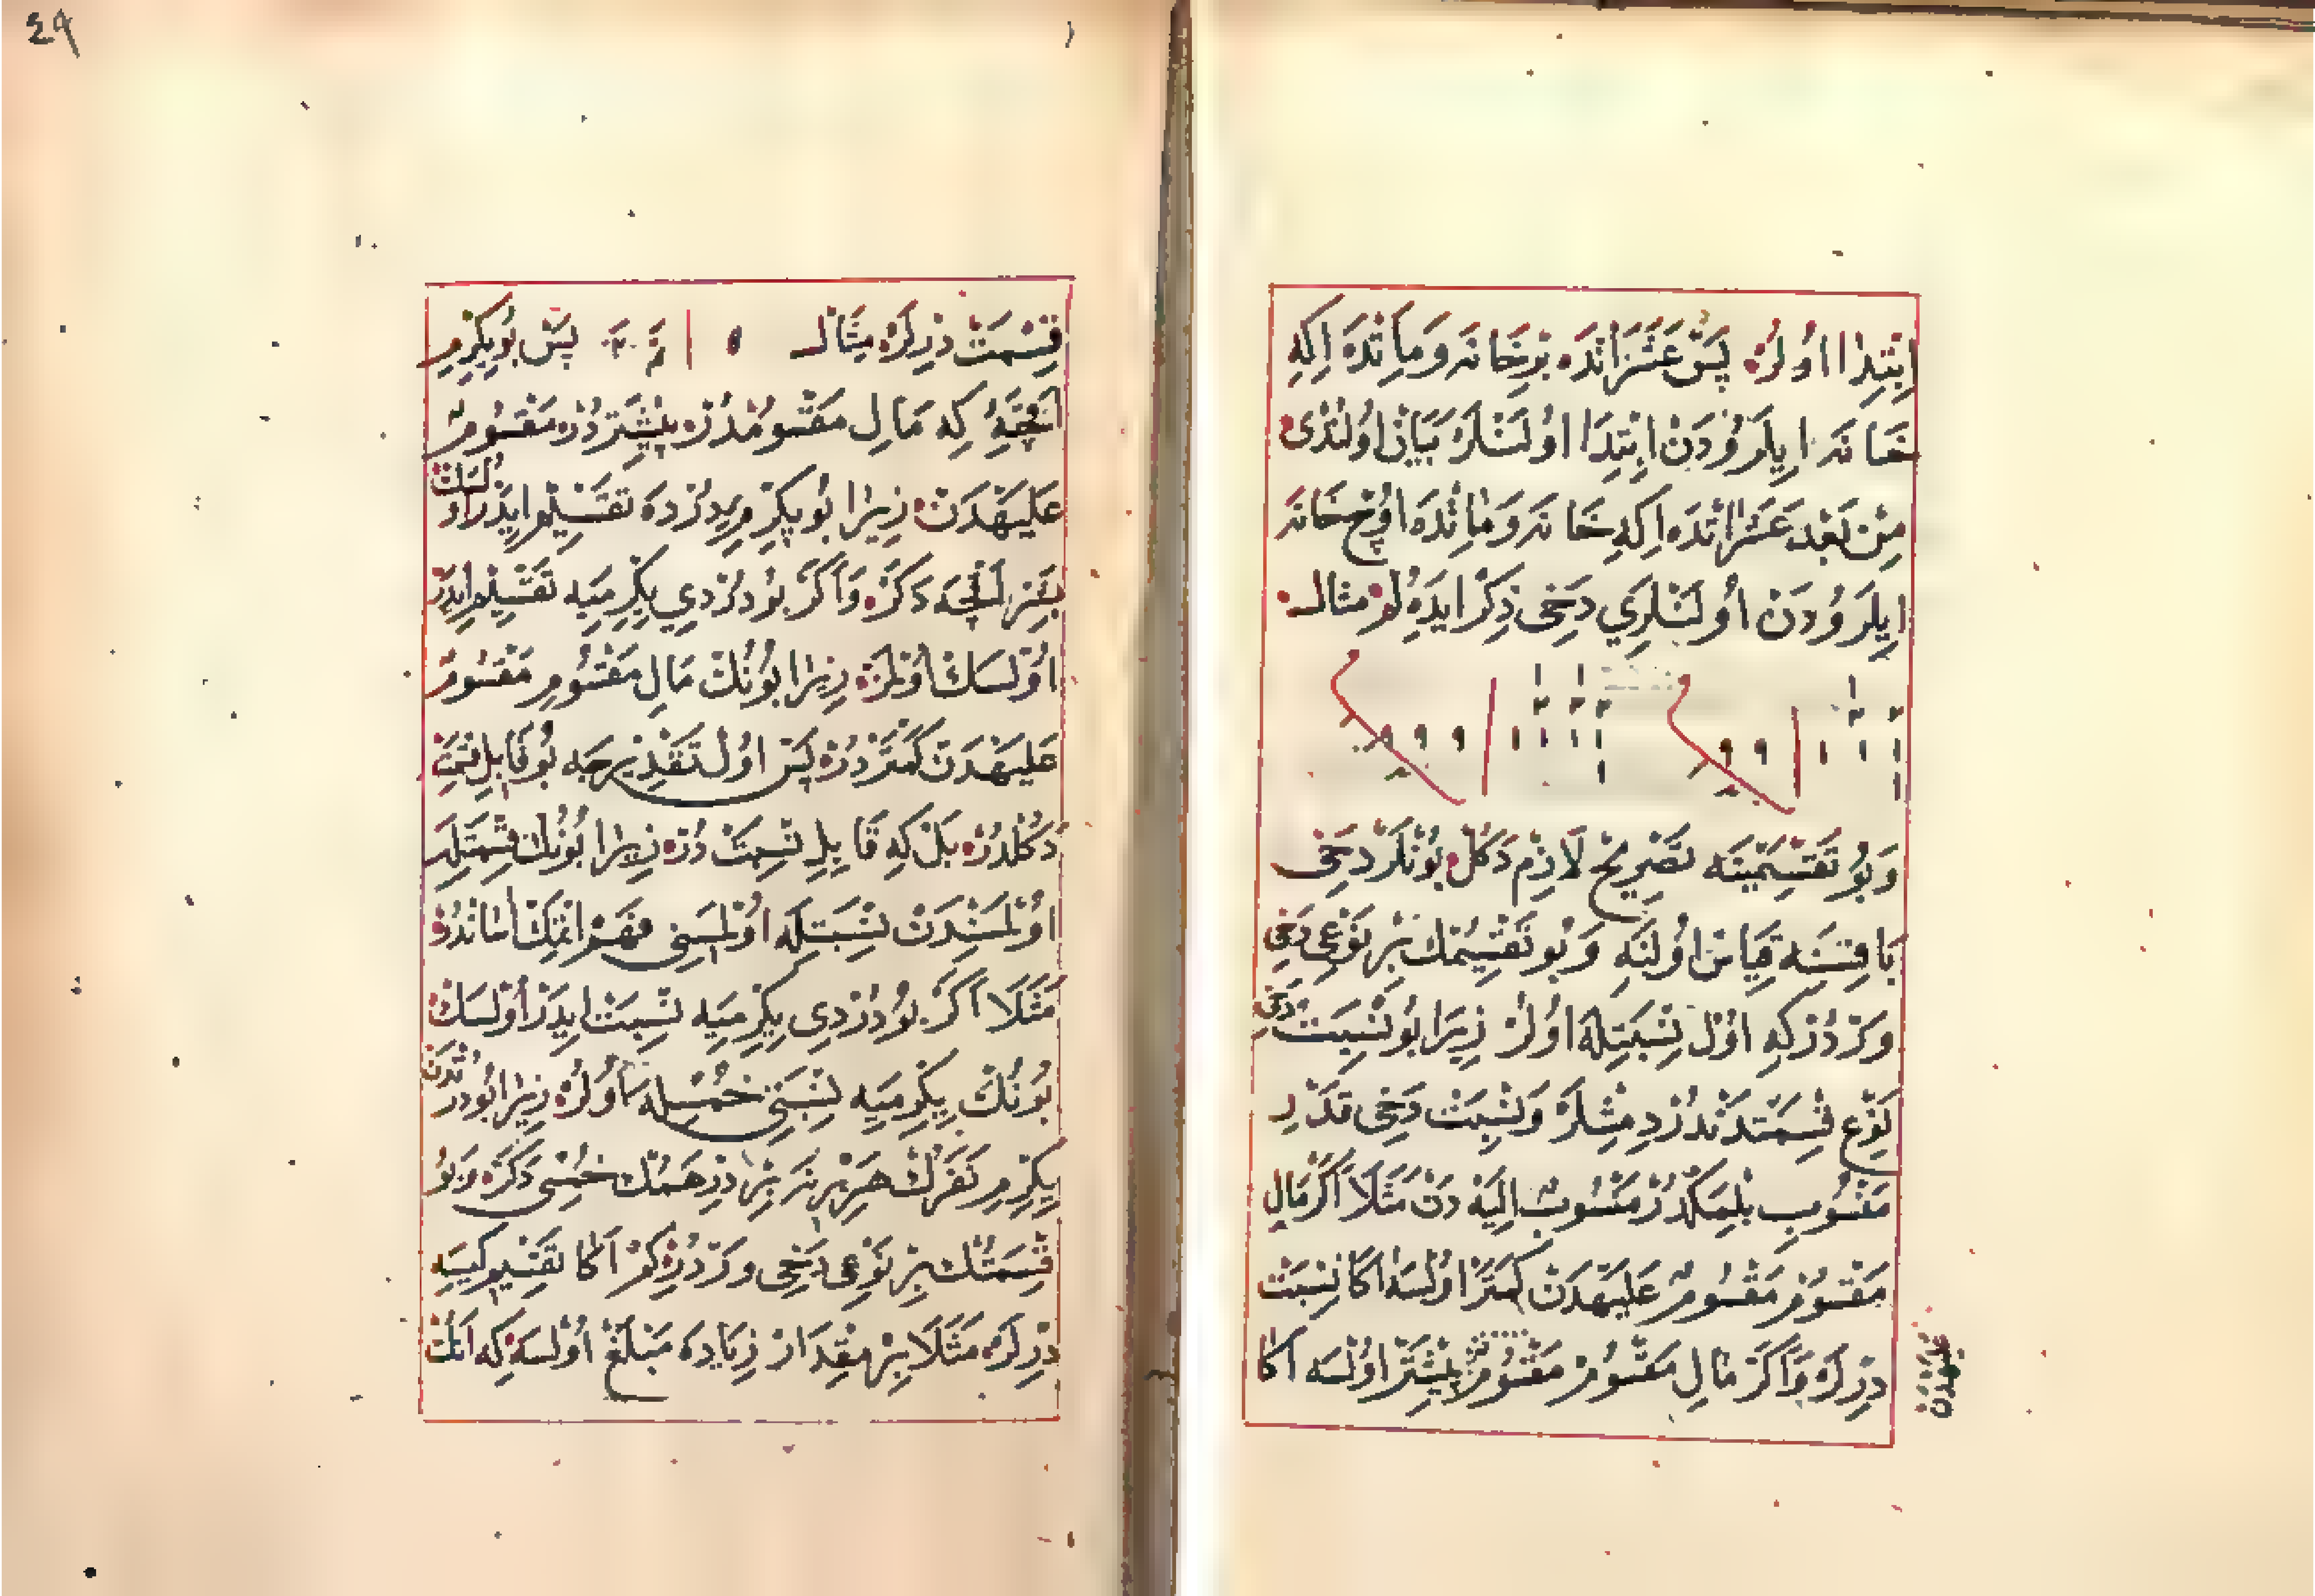 اِبْتِدَا اُولُرْ پَسْ عَشَرَاتْدَه بِرْ خَانَه وَ مِاتْدَه اِكِه
خَانَه اِيلَرُودَنْ اِبْتِدَا اُولَنْلَرْ بَيَانْ اُولُنْدِى
مِنْ بَعْد عَشَرَاتْدَه اِكِه خَانَه وَ مِاتْدَه اُوچْ خَانَه
اِيلَرُودَنْ اُولَنْلَرِي دَخِى ذِكْر اِيدَه لُمْ مثال
وَ بُو تَقْسِيمِينَه تَصْرِيحْ لَازِمْ دَكُلْ بُونْلَرْ دَخِى
بَاقِيسَنَه قِيَاسْ اُولُنَه وَ بُو تَقْسِيمُكْ بِرْ نَوْعِى دَخِى
وَرْدُرْ كِه اُولْ نِسْبَتِلَه اُولُرْ زِيرَا بُو نِسْبَتْ دَخِى
نَوْع قِسْمَتْدَنْدُرْ دِمِشْلَرْ وَ نِسْبَتْ دَخِى قَدْرِ
مَنْسُوبِ بِلْمَكْدُرْ مَنْسُوبٌ اِلَيْه دَنْ مَثَلَا اَكَرْ مَالِ
مَقْسُومْ مَقْسُومٌ عَلَيْهدَنْ كَمْتَرْ اُولْسَه اَكَا نِسْبَتْ
دِرْلَرْ وَ اَكَرْ مَالِ مَقْسُومْ مَقْسُومٌ بِيشْتَرْ اُولْسَه اَكَا
عليهدن
٤٩
قِسْمَتْ دِرْلَرْ مِثَالْ پَسْ بُو يِكِرْمِ
اَقْچَه كِه مَالِ مَقْسُومْدُرْ بِيشْتَرْدُرْ مَقْسُومٌ
عَلَيْهدَنْ زِيرَا بُو يِكِرْمِ يِ دُرْدَه تَقْسِيمْ اِيدَرْ اُولْسَكْ
بَشَرْ اَقْچَه دَكَرْ وَ اَكَرْ بُو دُرْدِي يِكِرْمِيَه تَقْسِيمْ اِيدَرْ
اُولْسَكْ اُولْمَزْ زِيرَا بُونُكْ مَالِ مَقْسُومِ مَقْسُومٌ
عَلَيْهدَنْ كَمْتَرْدُرْ پَسْ اُولْ تَقْدِيرْجَه بُو قَابِلِ قِسْمَتْ
دَكُلْدُرْ بَلْ كِه قَابِلِ نِسْبَتْدُرْ زِيرَا بُونُكْ قِسْمَتِلَه
اُولْمَسِنْدَنْ نِسْبَتِلَه اُولْمَسِى فَهْم اِتْمَكْ اٰسَانْدُرْ
مَثَلَا اَكَرْ بُو دُرْدِى يِكِرْمِيَه نِسْبَتْ اِيدَرْ اُولْسَكْ
بُونُكْ يِكِرْمِيَه نِسْبَتِى خُمْسِلَه اُولُرْ زِيرَا بُو دُرْتْدَنْ
يِكِرْمِ نَفَرُكْ هَرْ بِرِنَه بِرْ دِرْهَمُكْ خُمْسِى دَكَرْ وَ بُو
قِسْمَتُكْ بِرْ نَوْعِى دَخِى وَرْدُرْ كِمْ اَكَا تَقْسِيمِ كِيسَه
دِرْلَرْ مَثَلَا بِرْ مِقْدَارْ زِيَادَه مَبْلَغْ اُولْسَه كِه اَنُكْ